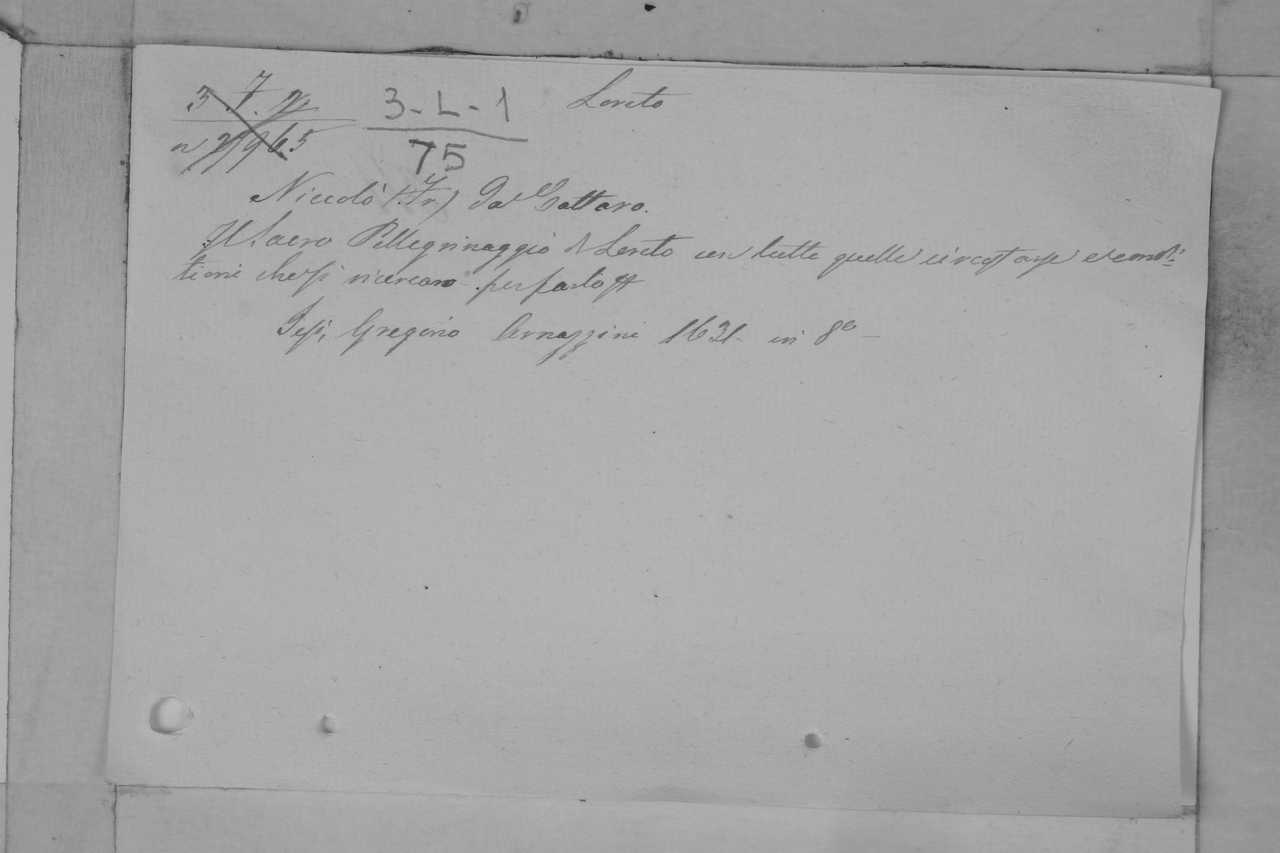 3-L-1 Loreto
75
Niccolò (Fr.) da Cattaro.
Il Sacro Pellegrinaggio di Loreto con tutte quelle e condi:
tioni che si ricercano per farlo
Jesi, Gregorio Arnazzini 1631. in 8º